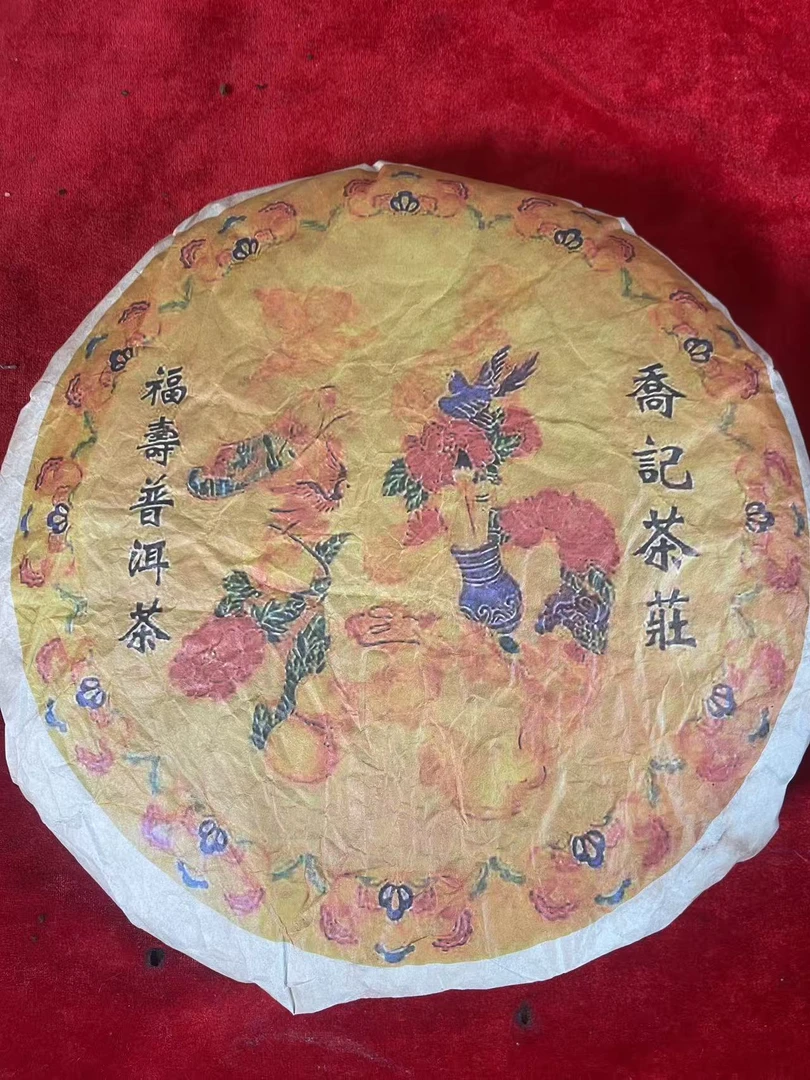 喬記茶莊
福壽普洱茶